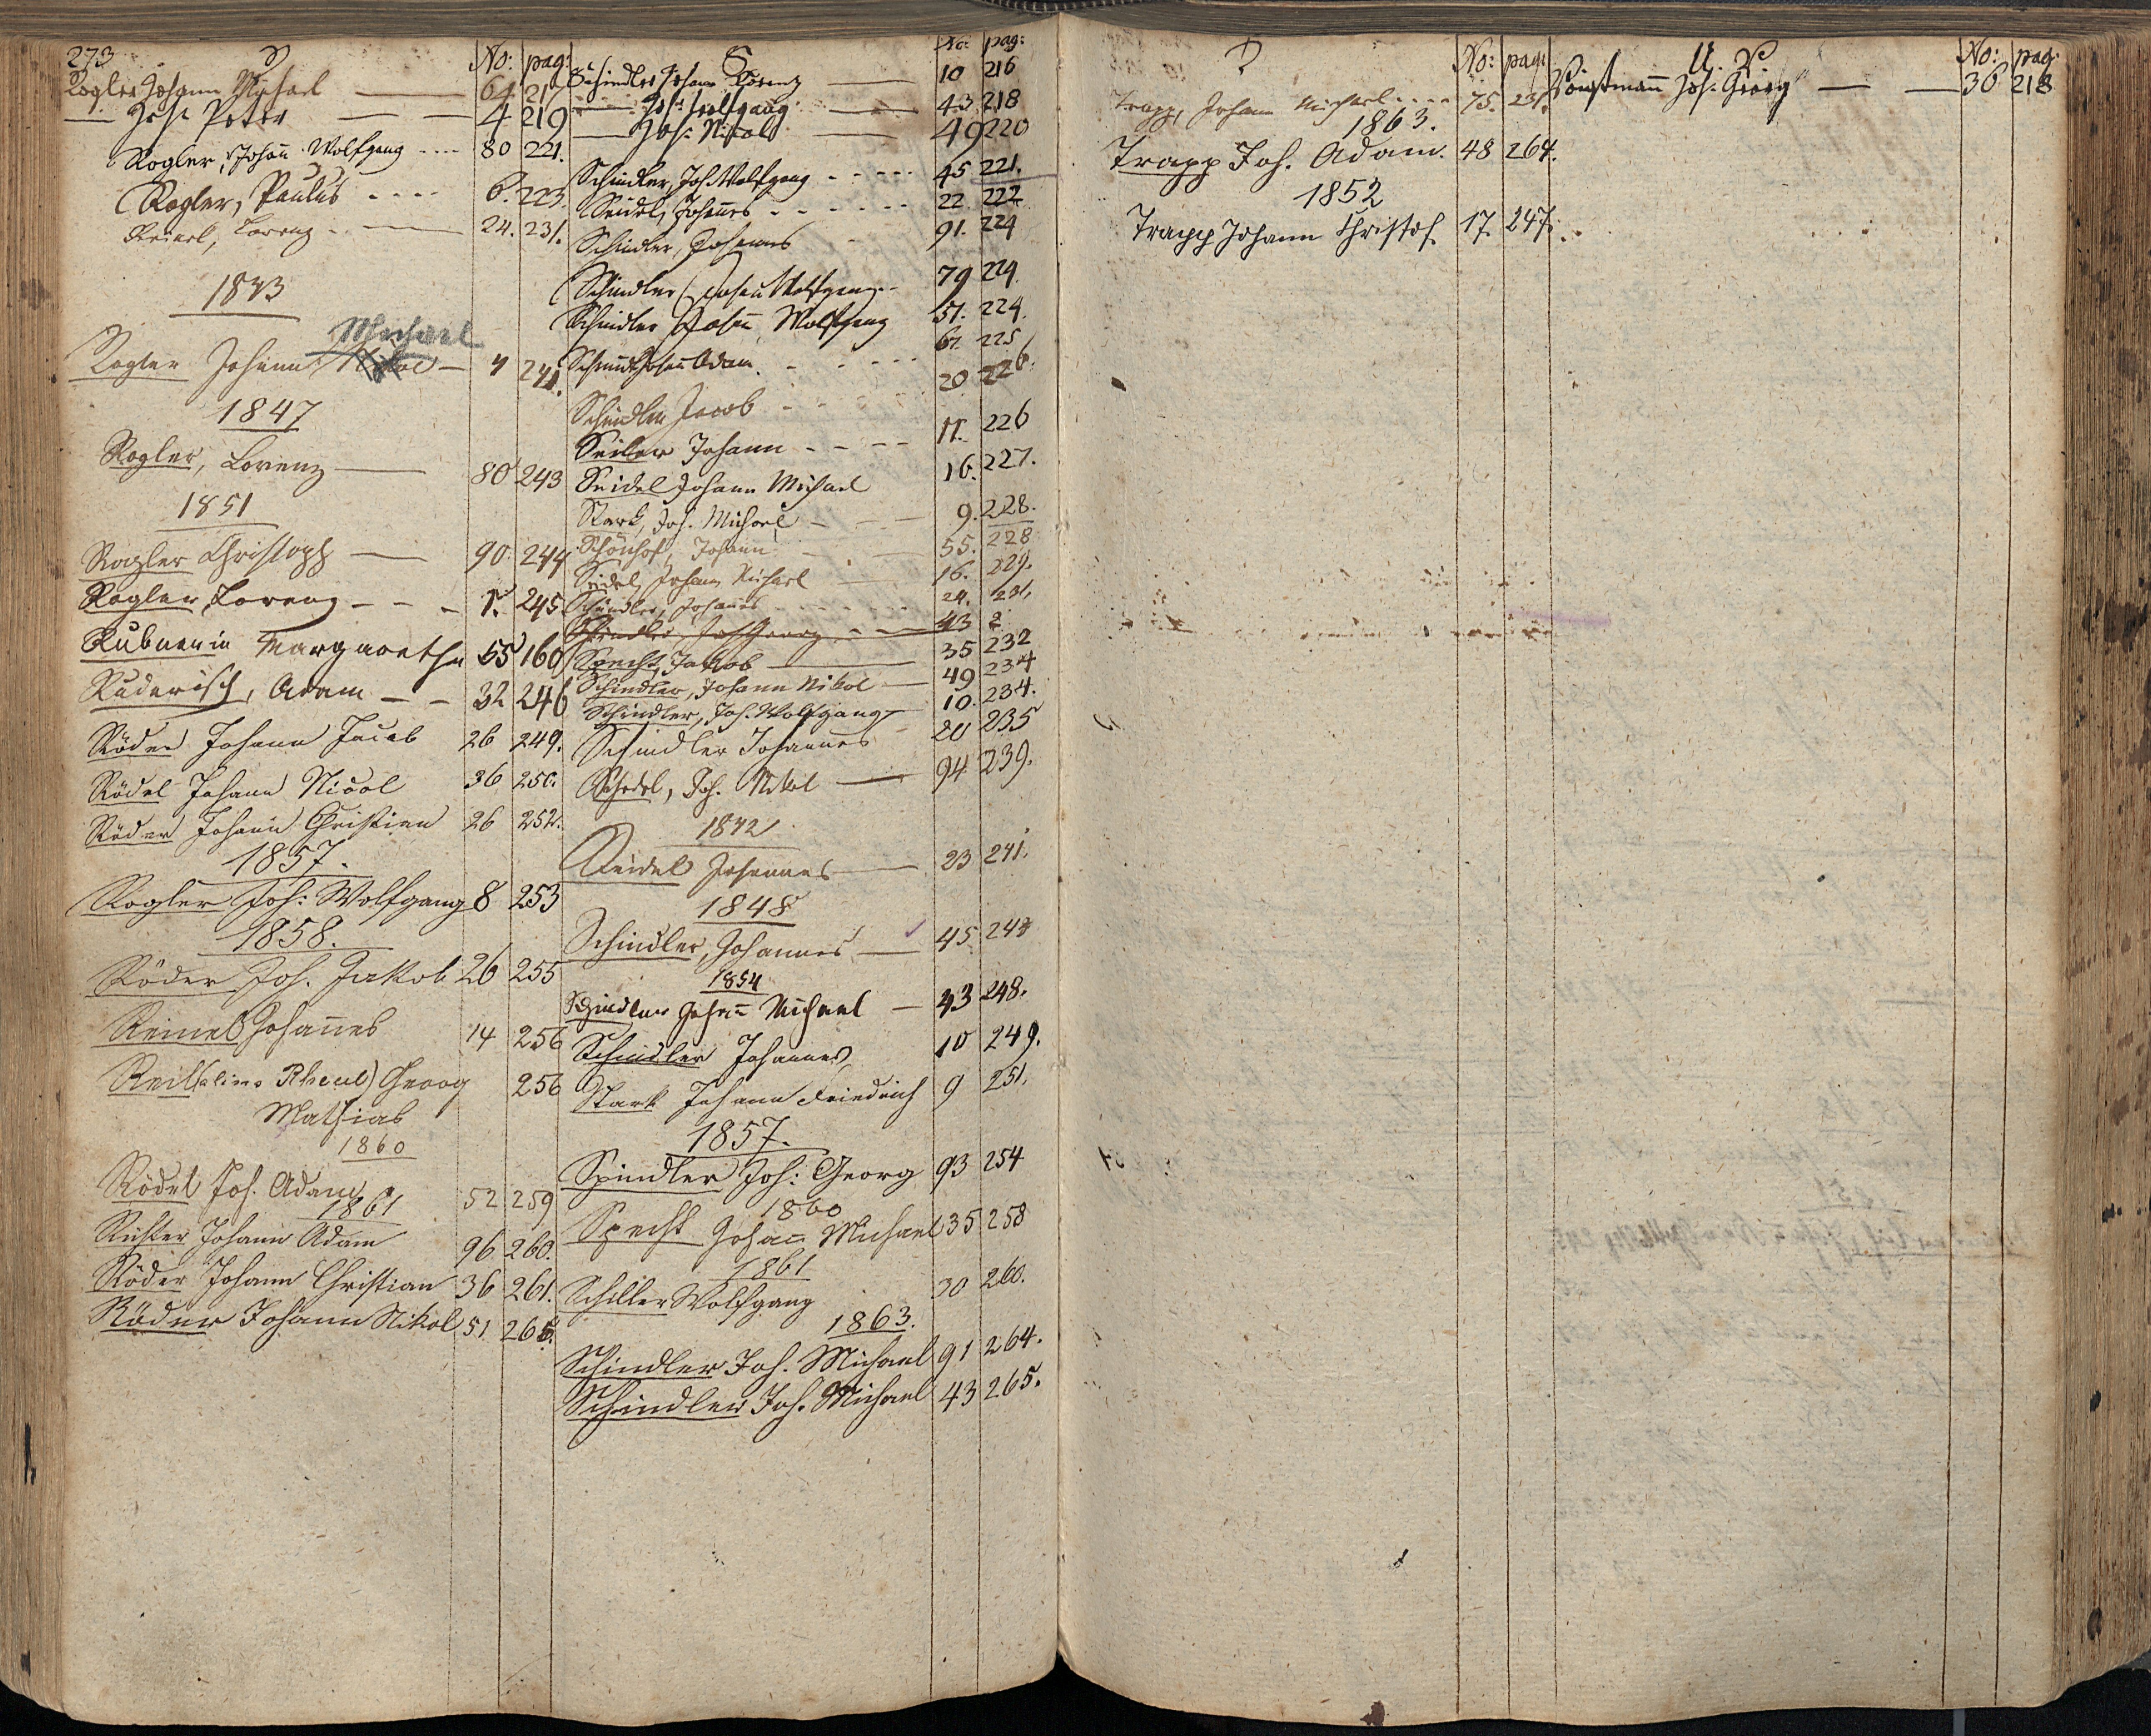 273
R No: pag:
Rogler Johann Michael 64. 217
— Joh: Peter — — 4 219
Rogler, Johañ Wolfgang ---- 80 221.
Rogler, Paulus ---- 6. 223.
Reinel, Lorenz — 24. 231.
1843
Michael
Rogler Johann Nikol — 4 241.
1847
Rogler, Lorenz — 80 243
1851
Rogler Christoph — 90. 244
Rogler Lorenz - - - 1. 245.
Rubnerin Margaretha 55 160
Ruderisch, Adam - - 32 246
Röder Johann Jacob 26 249.
Rödel Johann Nicol 36 250.
Röder Johann Christian 26 252.
1857.
Rogler Joh: Wolfgang 8 253
1858.
Röder Joh. Jakob 26 255
Reinel Johañes 14 256
Reil (alias Rheul) Georg 256
Mathias
1860
Rödel Joh. Adam 52 259
1861
Richter Johann Adam 96 260.
Röder Johann Christian 36 261.
Röder Johann Nikol 51 265.
S No: pag:
Schindler Johann Lorenz — 10 216
— Joh: Wolfgang — 43. 218
— Joh: Nicol — 49 220
Schindler, Joh. Wolfgang ----- 45 221.
Seidel, Johañes ------ 22 222
Schindler, Johannes 91. 224
Schindler, Johañ Wolfgang - 79 224.
Schindler Johañ Wolfgang 51. 224.
Schmidt Johañ Adam. - - - 67. 225
Schindler Jacob - - 20 226.
Seiler Johann - - - - 11. 226
Seidel Johann Michael 16. 227.
Stark, Joh. Michael - - — 9. 228.
Schönhof, Johann 55. 228
Seidel, Johann Michael 16. 229.
Schindler, Johannes ------ 24. 231.
Schindler, Joh Georg - - — 43 2
Specht, Jakob — 35 232
Schindler, Johann Nikol — 49 234
Schindler, Joh. Wolfgang — 10. 234.
Schindler Johannes - 20 235
Schedel, Joh. Nikol — 94 239.
1842
Seidel Johannes — 23 241.
1848
Schindler, Johannes — 45 243
1854
Schindler Johañ Michael — 43 248.
Schindler Johannes 10 249.
Stark Johann Friedrich 9 251.
1857.
Spindler Joh: Georg 93 254
1860
Specht Johañ Michael 35 258
1861
Schiller Wolfgang 30 260.
1863.
Schindler Joh. Michael 91 264.
Schindler Joh. Michael 43 265.
T No: pag:
Trapp, Johann Michael ---- 75. 231.
1863.
Trapp Joh. Adam. 48 264.
1852
Trapp Johann Christof. 17. 247.
U. V No: pag:
Joh. Georg — — 36 218